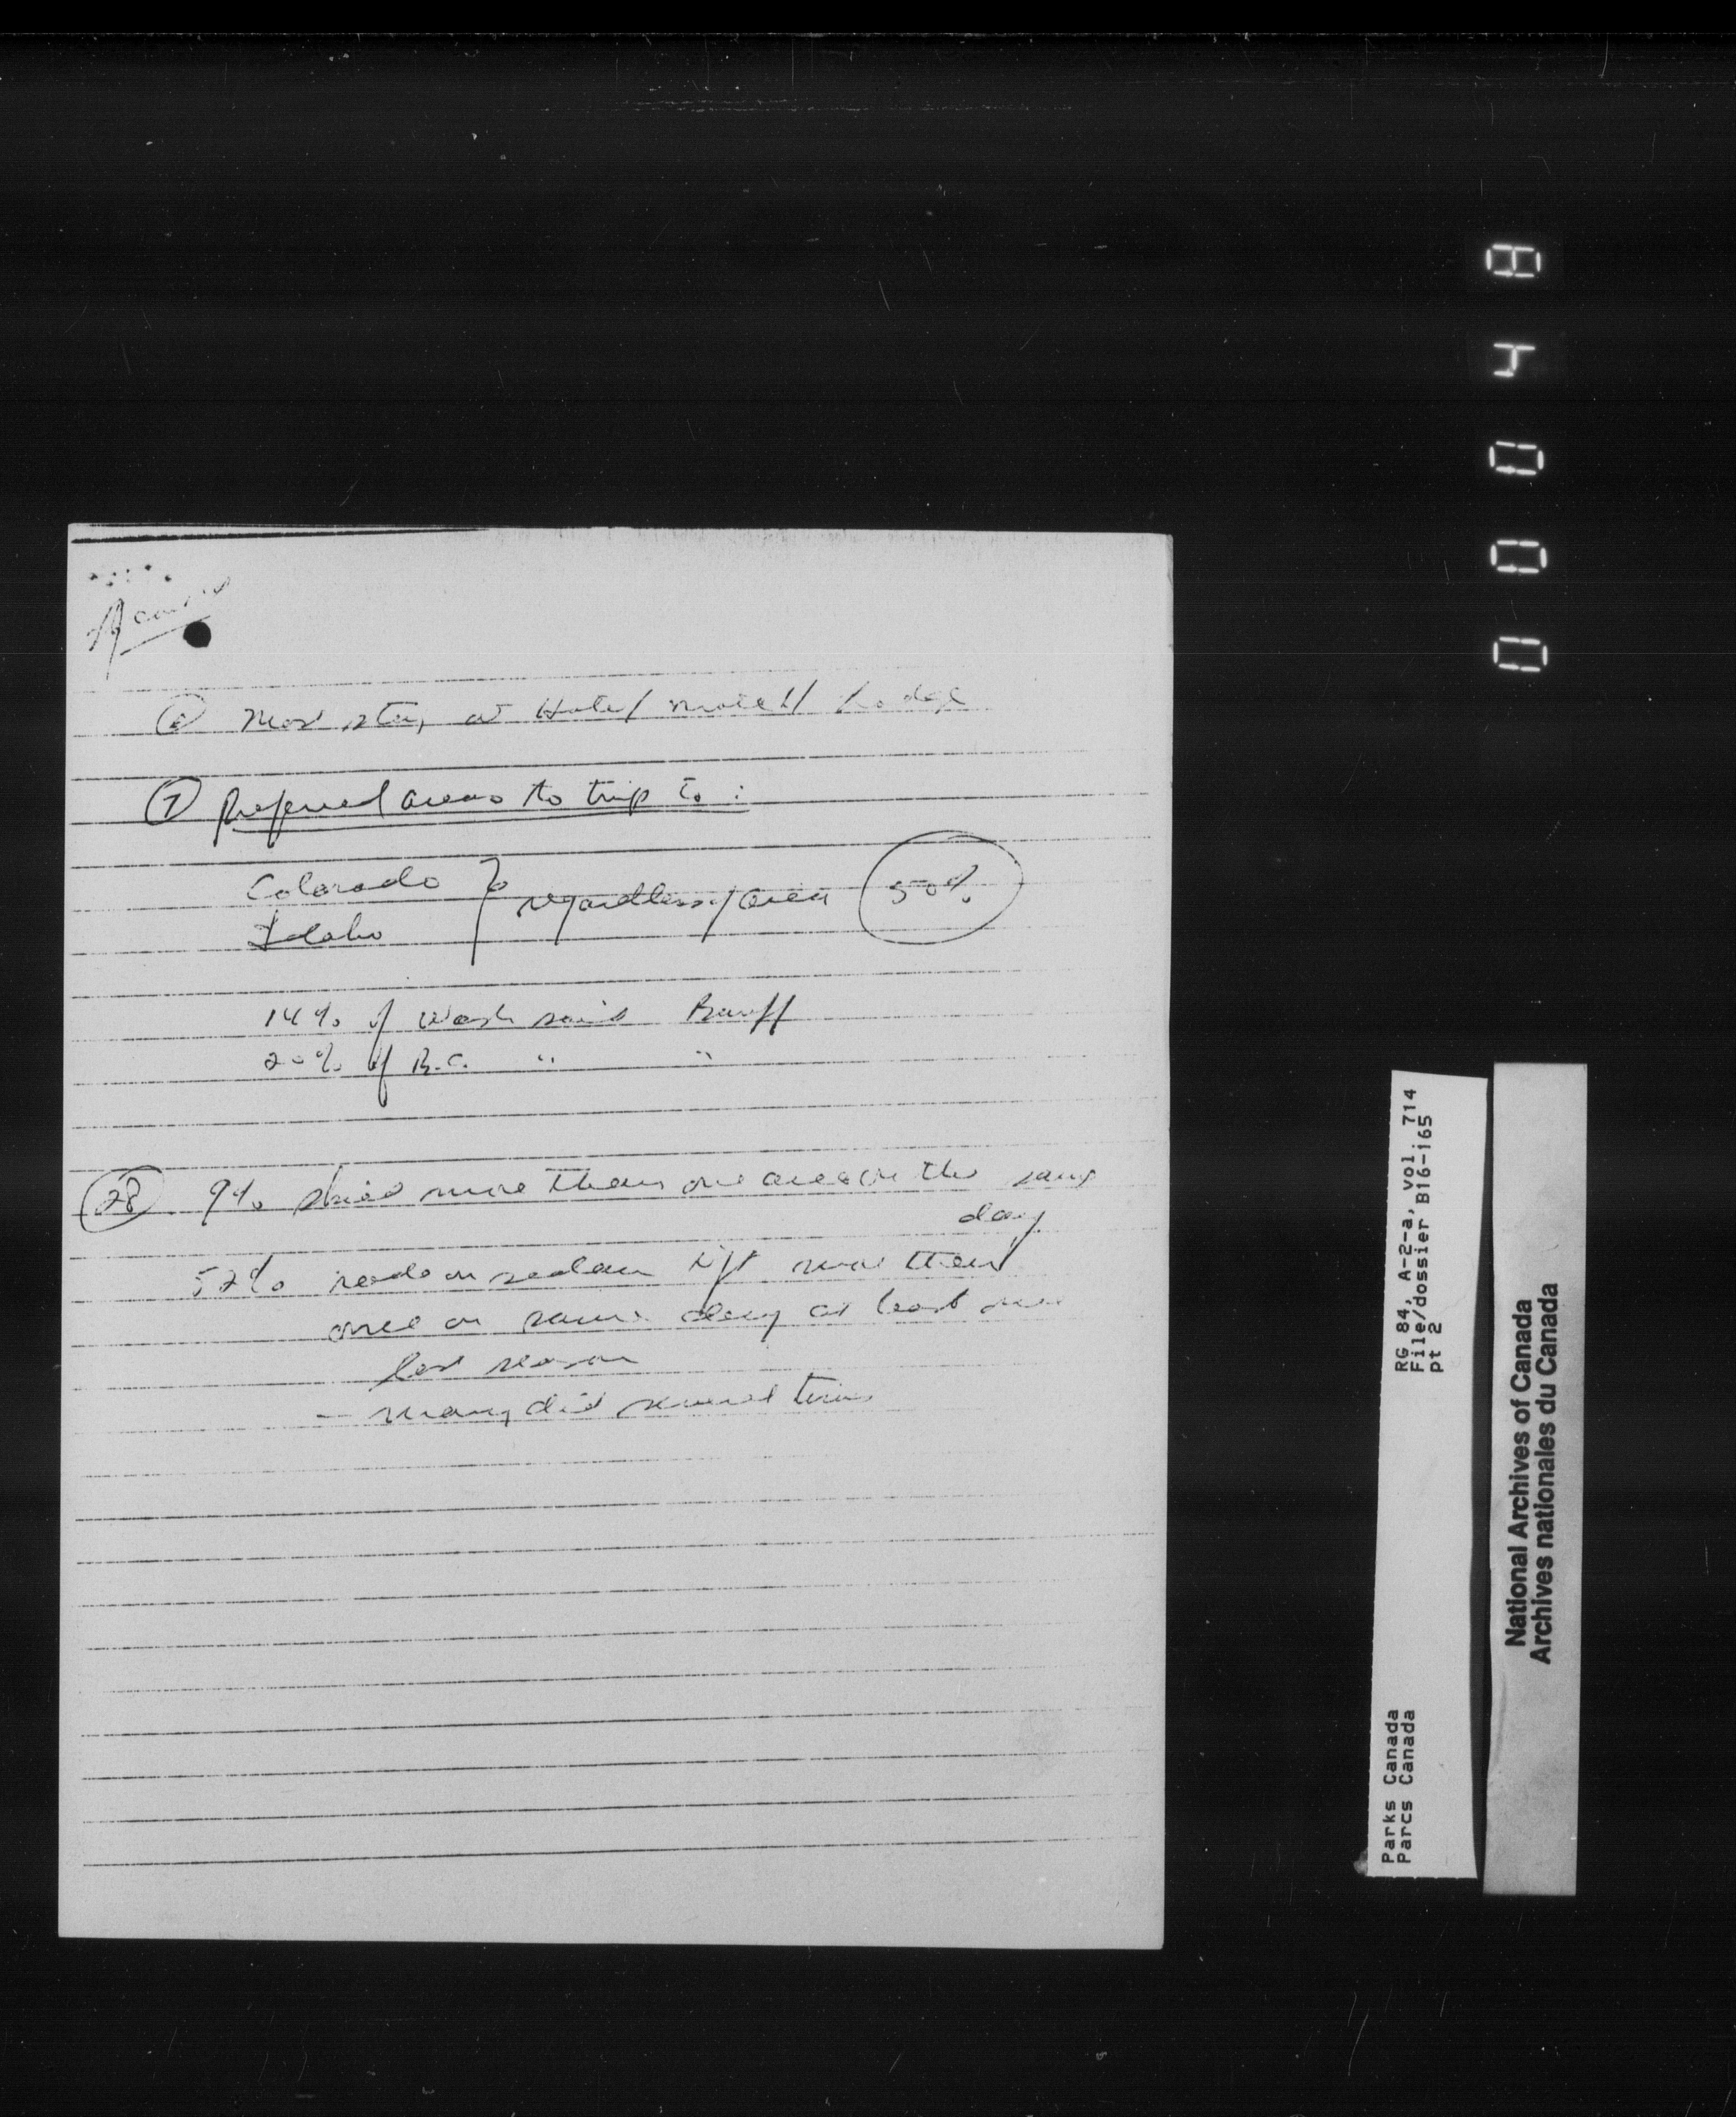 Most stay at Hotel/motel/Lodge
⑦ Preferred areas to trip to :
Colorado } regardless of area 50%
Idaho
14% of Wash said Banff
20% of B.C. " "
28 9% skied more than one area on the same
day
52% rode on lift more than
once on same day at least once
last season
- many did several times
00048
RG 84, A-2-a, vol. 714
File/dossier B16-165
pt 2
Parks Canada
Parcs Canada
National Archives of Canada
Archives nationales du Canada